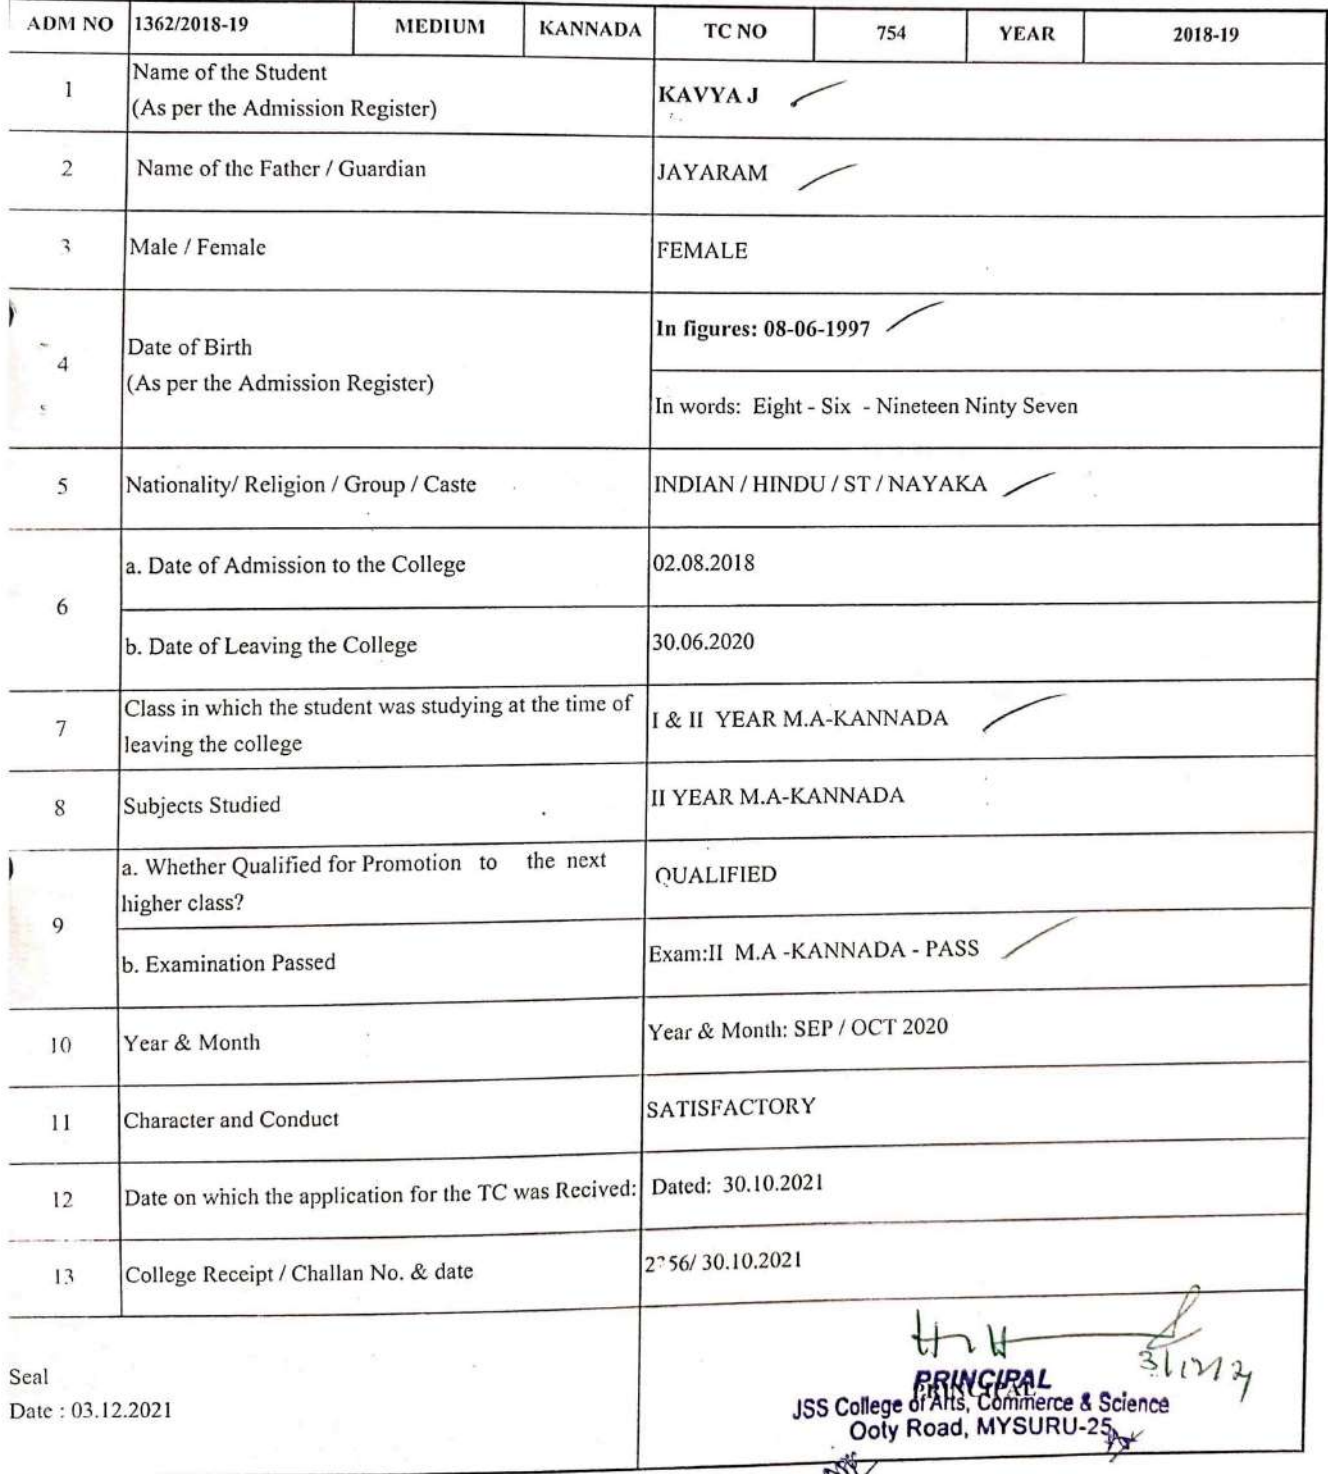 ADM NO 1362/2018-19 MEDIUM KANNADA TC NO 754 YEAR 2018-19
1 Name of the Student
(As per the Admission Register) KAVYA J
2 Name of the Father / Guardian JAYARAM
3 Male / Female FEMALE
4 Date of Birth
(As per the Admission Register)
In figures: 08-06-1997
In words: Eight - Six - Nineteen Ninty Seven
5 Nationality/ Religion / Group / Caste INDIAN / HINDU / ST / NAYAKA
6 a. Date of Admission to the College 02.08.2018
b. Date of Leaving the College 30.06.2020
7 Class in which the student was studying at the time of
leaving the college I & II YEAR M.A-KANNADA
8 Subjects Studied II YEAR M.A-KANNADA
9 a. Whether Qualified for Promotion to the next
higher class? QUALIFIED
b. Examination Passed Exam:II M.A -KANNADA - PASS
10 Year & Month Year & Month: SEP / OCT 2020
11 Character and Conduct SATISFACTORY
12 Date on which the application for the TC was Recived: Dated: 30.10.2021
13 College Receipt / Challan No. & date 30.10.2021
Seal
Date : 03.12.2021
PRINCIPAL
PRINCIPAL
JSS College of Arts, Commerce & Science
Ooty Road, MYSURU-25